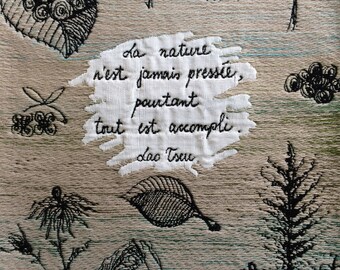 La nature
n'est jamais pressée,
pourtant
tout est accompli.
Lao Tseu